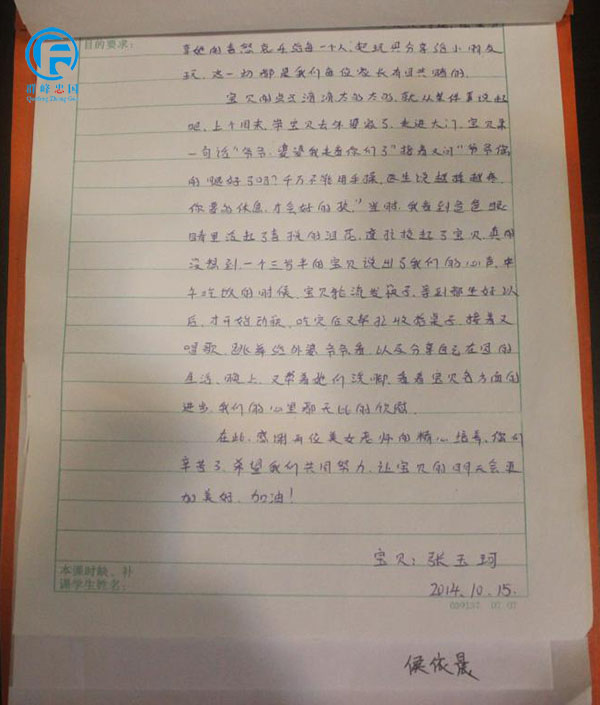 群峰忠国
Qunfeng Zhong Guo
目的要求:
享她的喜怒哀乐给每一个人,起玩具分享给小朋友
玩,这一切都是我们每位家长有目共睹的。
宝贝的点点滴滴太多太多,就从某件事说起
吧,上个周末,学生又去外婆家了,走进大门,宝贝第
一句话“爷爷、婆婆我来看你们了”接着又问“爷爷你
的腿好了吗?千万不能用手揉,医生说越揉越疼,
你要多休息,才会好的哟。”当时,我看到爸爸眼
睛里泛起了喜悦的泪花,连忙抱起了宝贝,真的
没想到,一个三岁半的宝贝说出了我们的心声,中
午吃饭的时候,宝贝轮流发筷子,等到都坐好以
后,才开始动筷,吃完后又帮忙收拾桌子,接着又
唱歌、跳舞给外婆爷爷看,以及分享自己在园的
生活,晚上,又帮着她们洗脚,看着宝贝各方面的
进步,我们的心里都无比的欣慰。
在此,感谢每位美女老师的精心培养,你们
辛苦了,希望我们共同努力,让宝贝的明天会更
加美好,加油!
宝贝:张玉珂
2014.10.15.
本课时缺、补
课学生姓名:
侯依晨